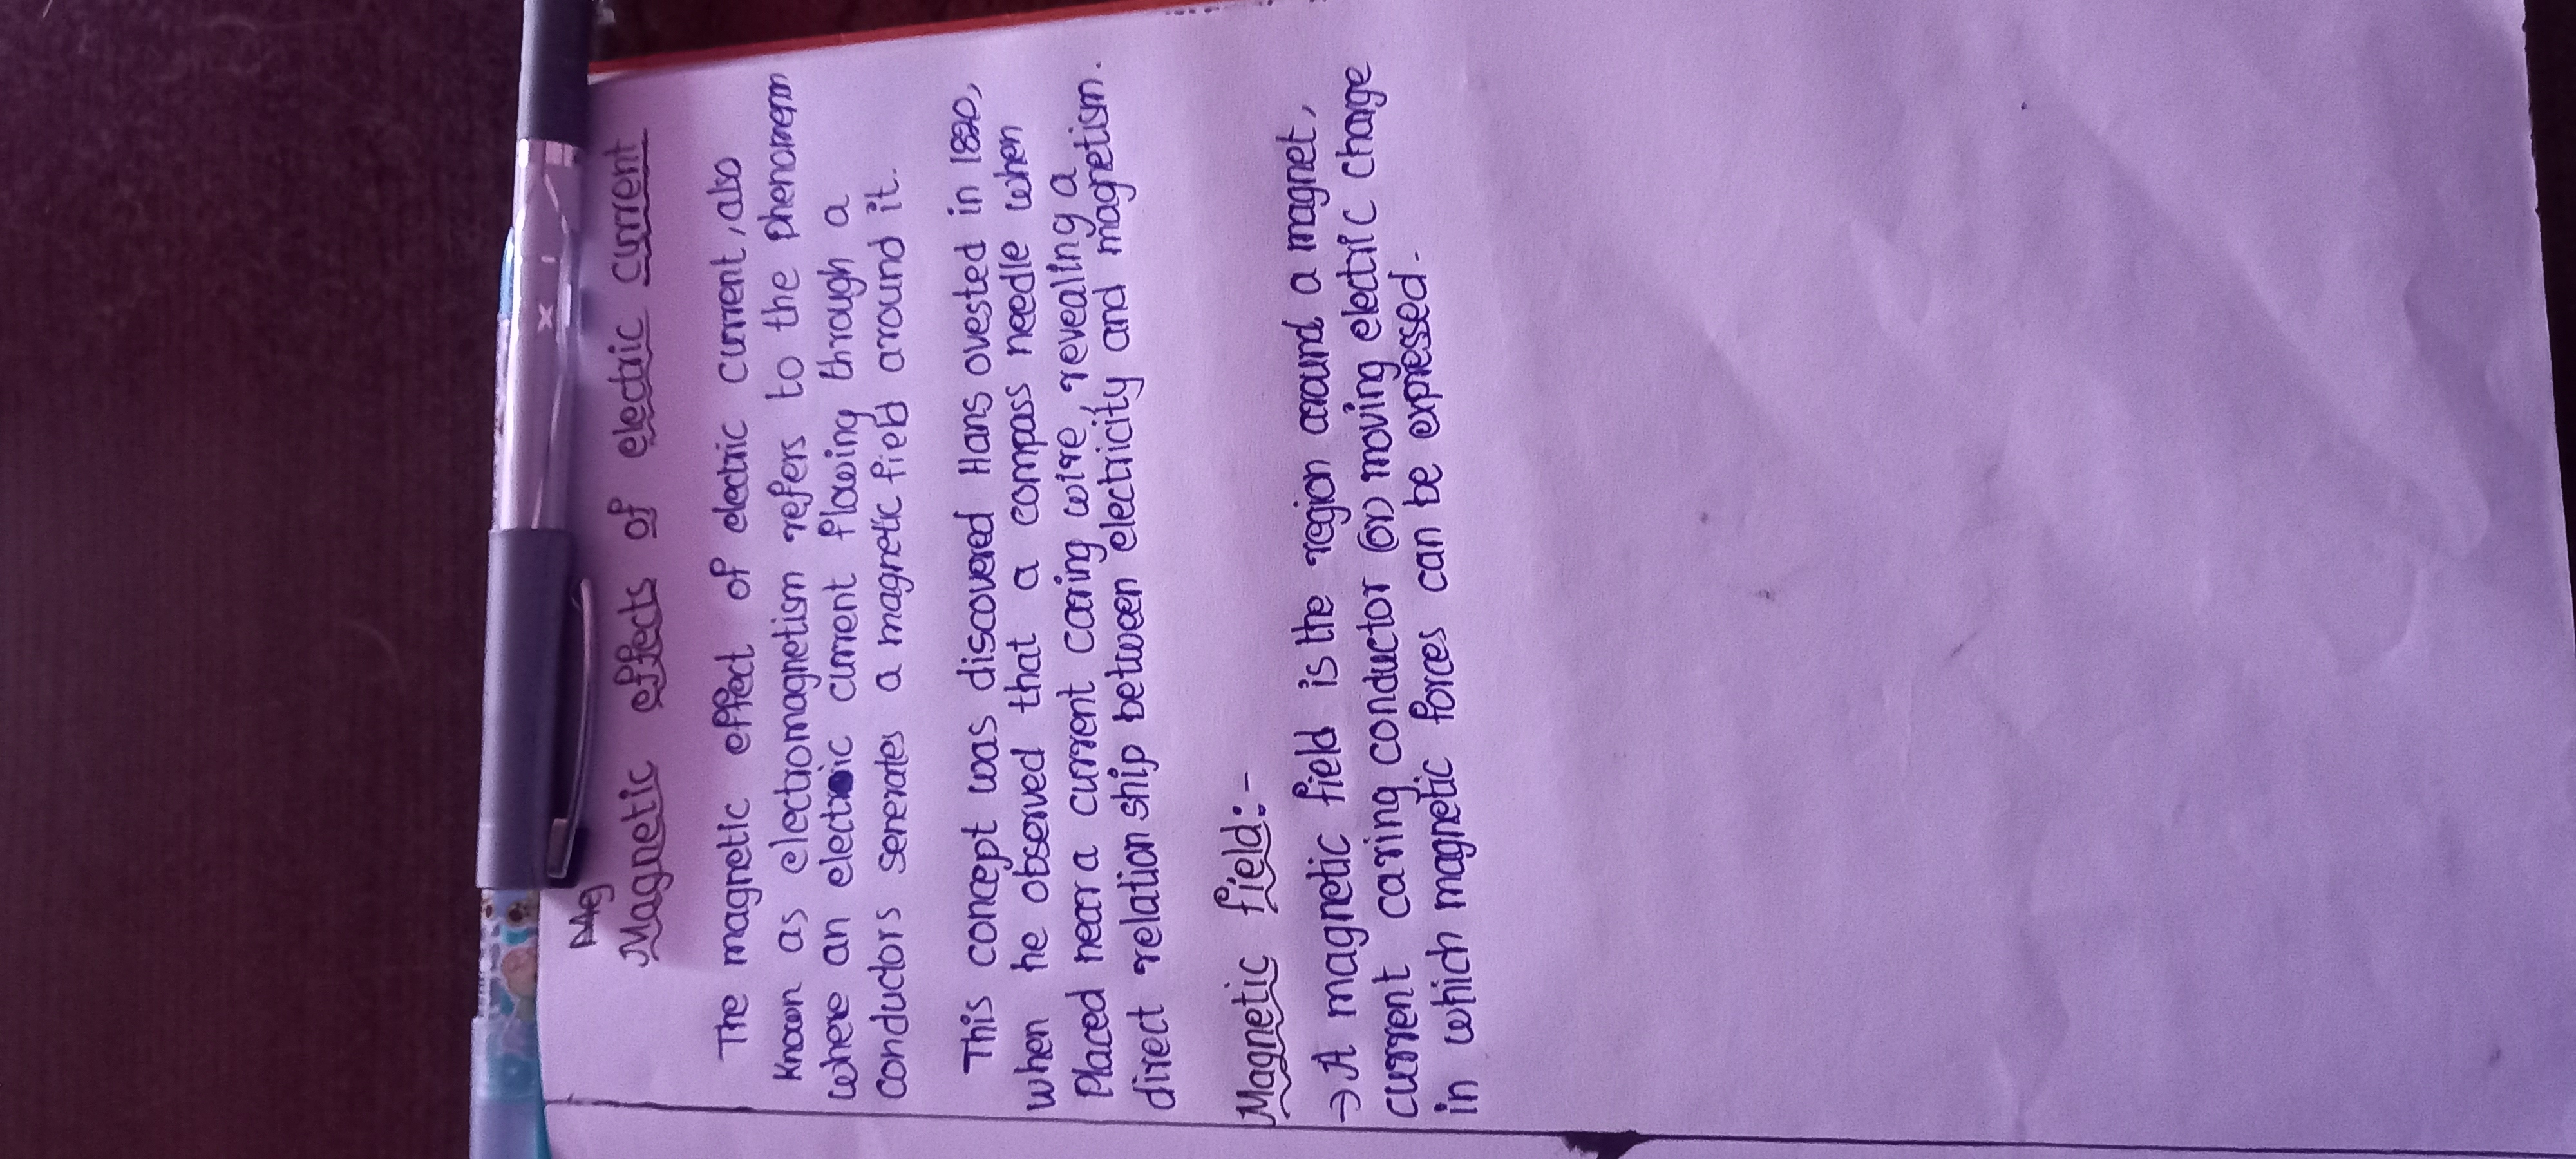 Mag
Magnetic effects of electric current
The magnetic effect of electric current, also
known as electromagnetism refers to the phenomenon
where an electric current flowing through a
conductors senerates a magnetic field around it.
This concept was discovered Hans ovested in 1820,
when he observed that a compass needle when
Placed near a current caring wire, revealing a
direct relation ship between electricity and magnetism.
Magnetic field:-
→ A magnetic field is the region around a magnet,
current caring conductor (or) moving electric charge
in which magnetic forces can be expressed.